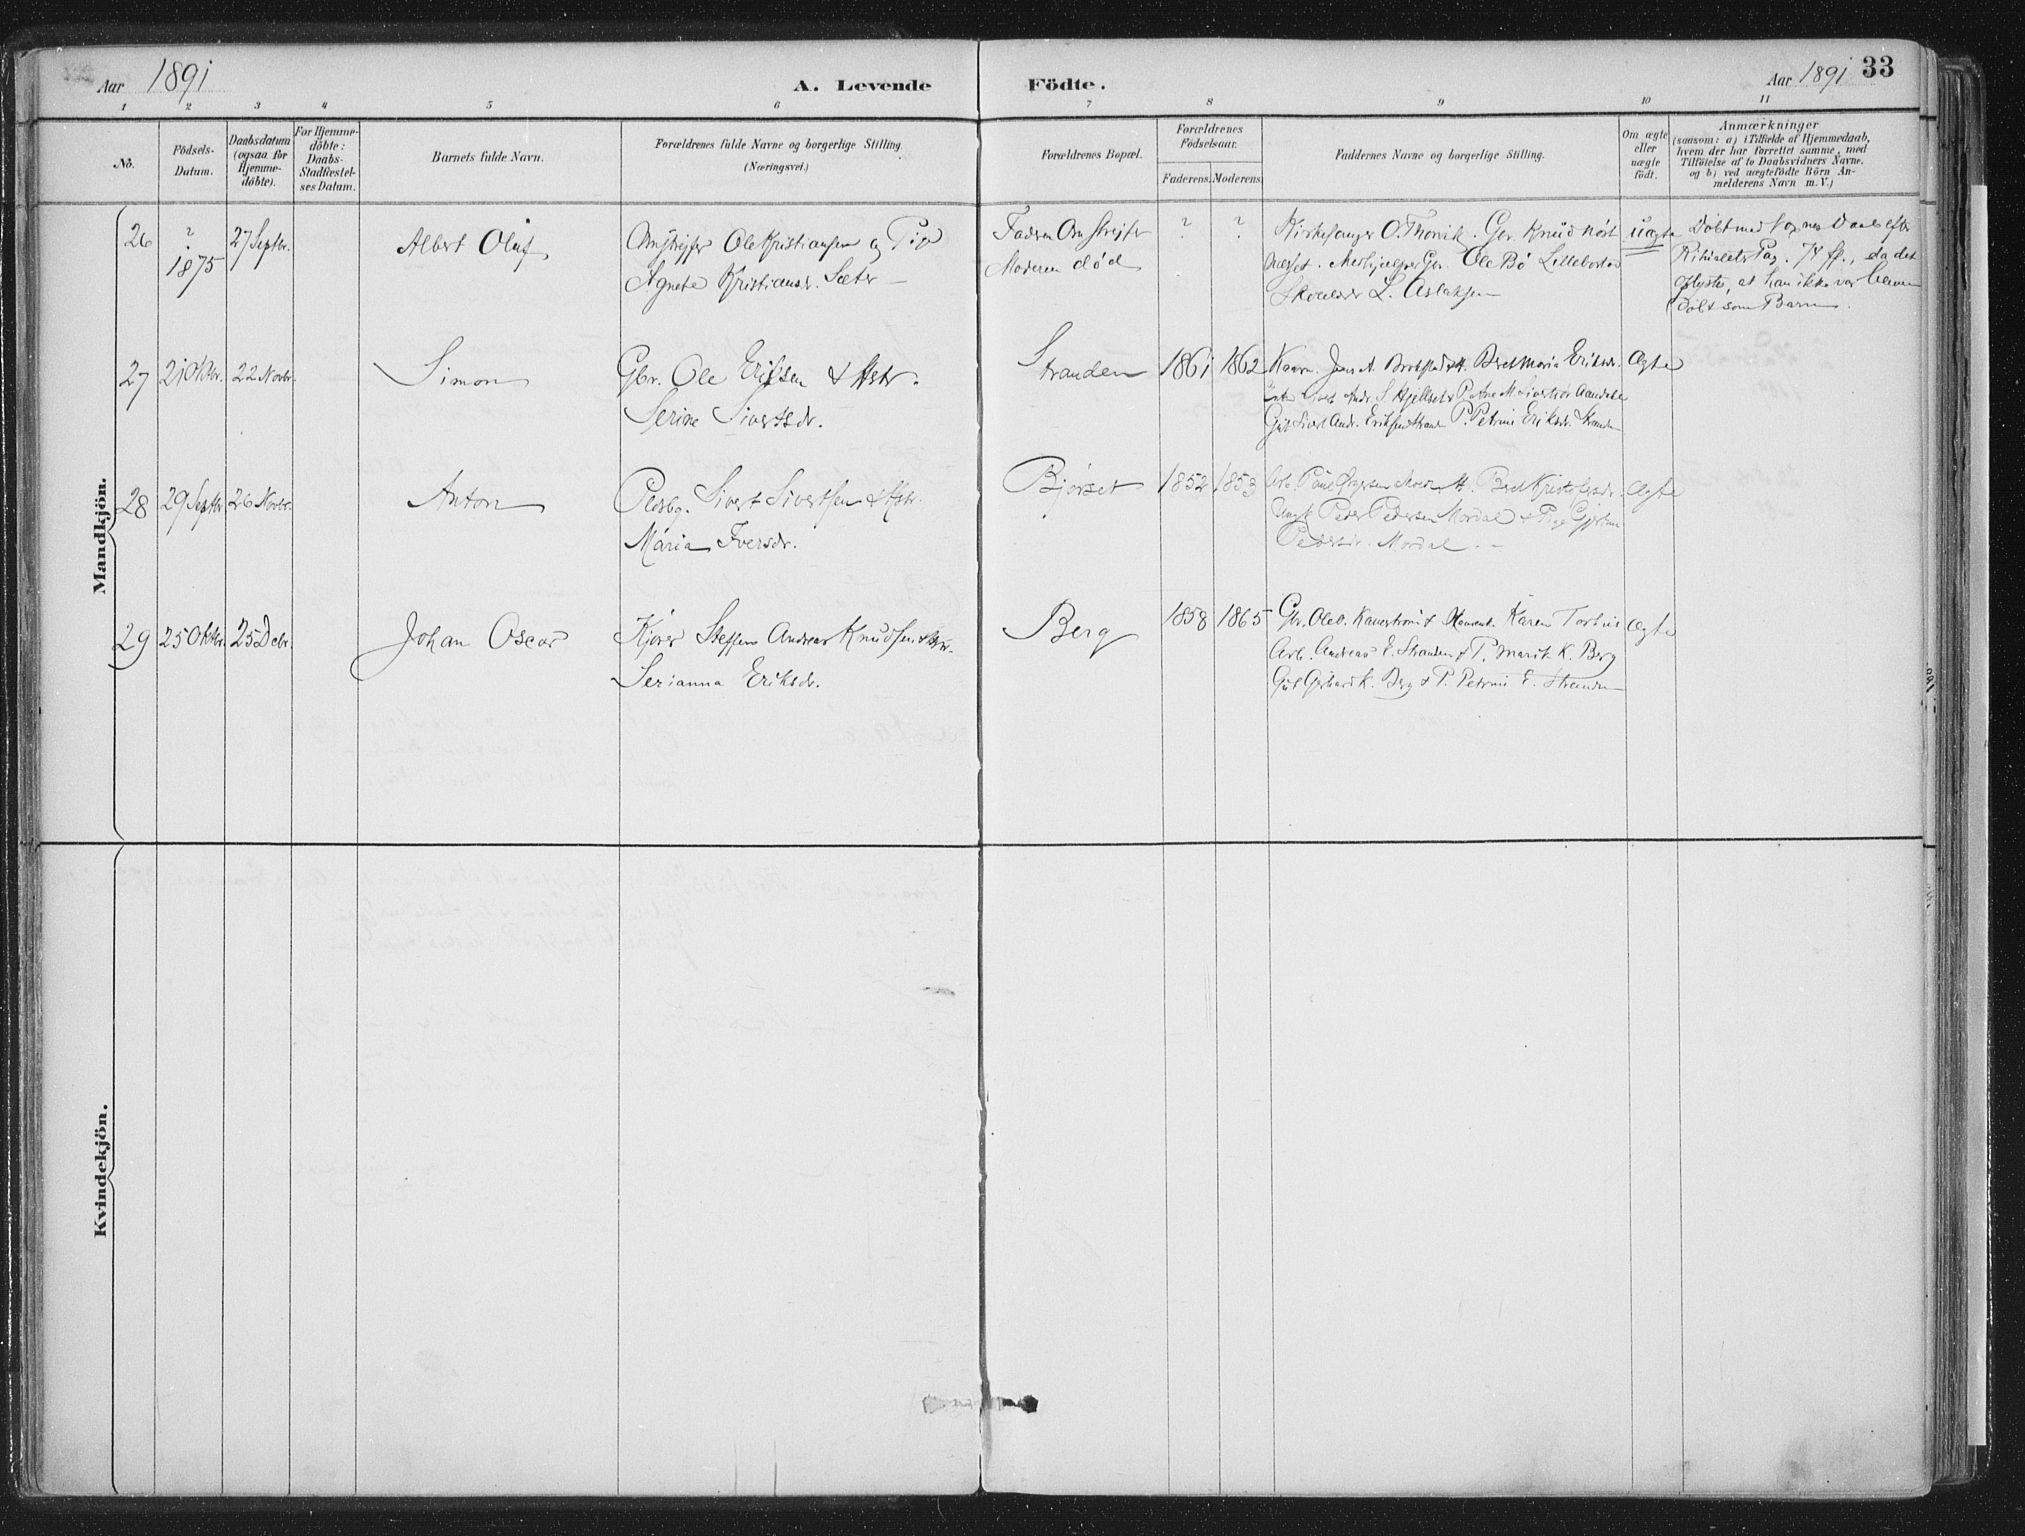 Aar 1891
A. Levende Födte.
Aar 1891 33
1 2 3 4 5 6 7 8 9 10 11
No.
Födsels-
Datum.
Daabsdatum
(ogsaa for
Hjemme-
döbte).
For Hjemme-
döbte:
Daabs-
Stadfestel-
ses Datum.
Barnets fulde Navn.
Forældrenes fulde Navne og borgerlige Stilling.
(Næringsvei.)
Forældrenes Bopæl.
Forældrenes
Födselsaar.
Faderens. Moderens.
Faddernes Navne og borgerlige Stilling.
Om ægte
eller
uægte
födt.
Anmærkninger
(saasom: a) i Tilfælde af Hjemmedaab,
hvem der har forrettet samme, med
Tilföielse af to Daabsvidners Navne.
og b) ved uægtefödte Börn An-
melderens Navn m. V.)
Mandkjön.
26 ? 1875 27 Septbr. Albert Oluf
Ole Kristiansen og Pig
Agnete Kristiansdr. Sæter
Faderen Omstreifer
Moderen død
? ?
Kirkesanger O. Thorvik. Gbr. Knud
Ole Bø Lillebostad
L. Aslaksen
uægte
Døbt med Voxnes Daab efter
Ritualets Pag. 74 ff., da det
oplystes, at han ikke var bleven
døbt som Barn.
27 21 Oktbr. 22 Novbr. Simon
Gbr. Ole Eriksen & Hstr.
Serine Sivertsdr.
Stranden 1861 1862
Jens A. H. Beret Maria Eriksdr.
Andr. S. Hjellset P. Ane M. Sivertsdr
Sivert Andr. Eriksen Strand P. Petrine Eriksdr. Stranden
Ægte
28 29 Septbr. 26 Novbr. Anton
Pladsbg. Sivert Sivertsen & Hstr.
Maria Iversdr.
Bjørset 1852 1853
Arb. Paul H. Beret Kristofersdr.
Ungk. Peder Pedersen Mordal & Pige
Pedersdr. Mordal.
Ægte
29 25 Oktbr. 25 Debr. Johan Oscar
Kjører Steffen Andreas Knudsen & Hstr.
Serianna Eriksdr.
Berg 1858 1865
Gbr. Ole O. & Karen
Arb. Andreas E. Stranden & P. Marit K. Berg
Gut Gerhard K. Berg & P. Petrine E. Stranden
Ægte
Kvindekjön.